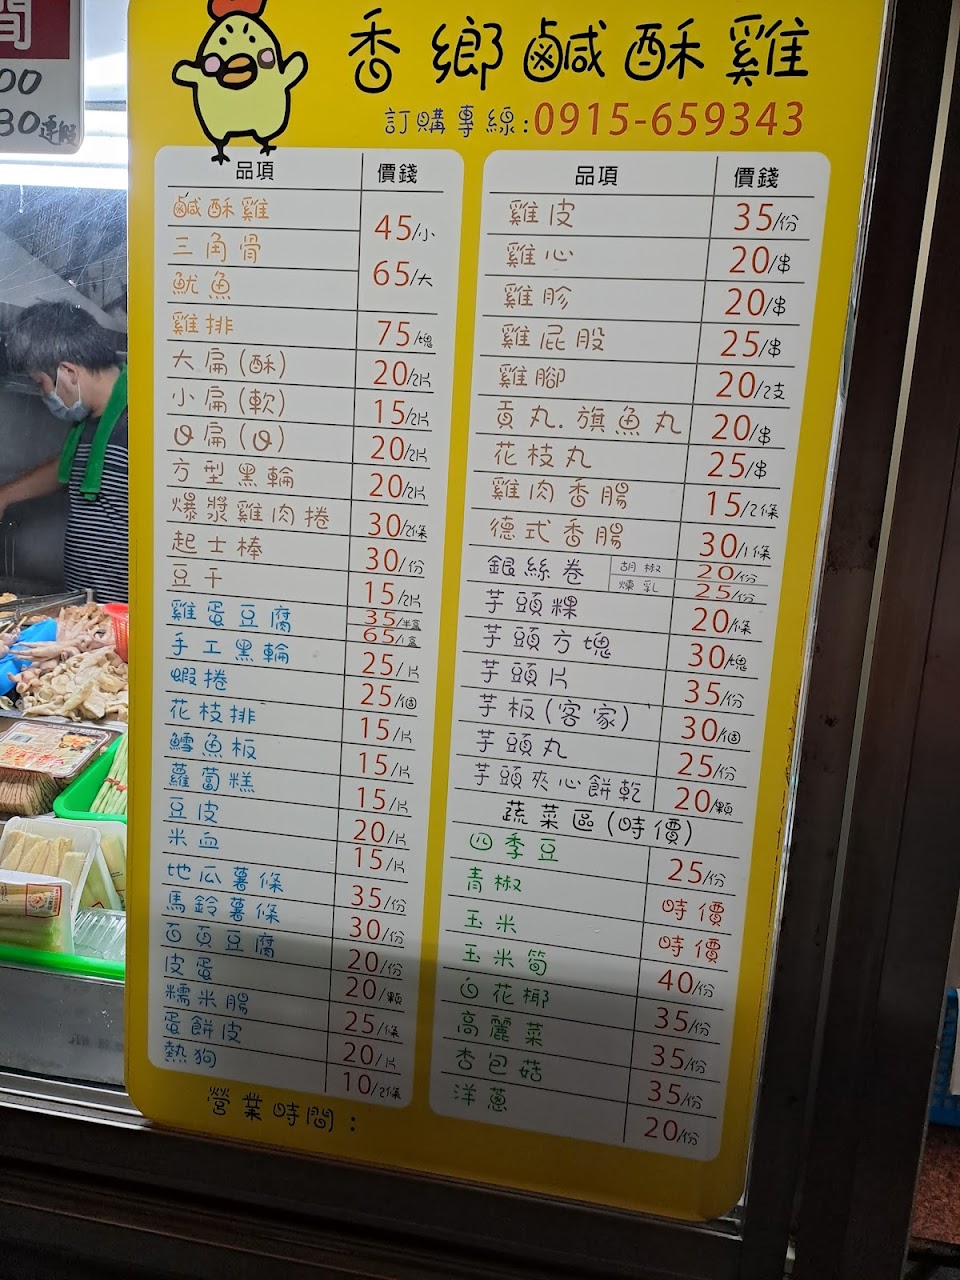 間
00
30連假
香鄉鹹酥雞
訂購專線:0915-659343
品項 價錢
鹹酥雞 45/小
三角骨
魷魚 65/大
雞排 75/塊
大扁(酥) 20/2片
小扁(軟) 15/2片
白扁(白) 20/2片
方型黑輪 20/2片
爆漿雞肉捲 30/2條
起士棒 30/份
豆干 15/2片
雞蛋豆腐 35/半盒 65/1盒
手工黑輪 25/片
蝦捲 25/個
花枝排 15/片
鱈魚板 15/片
蘿蔔糕 15/片
豆皮 20/片
米血 15/片
地瓜薯條 35/份
馬鈴薯條 30/份
百頁豆腐 20/份
皮蛋 20/顆
糯米腸 25/條
蛋餅皮 20/片
熱狗 10/2條
品項 價錢
雞皮 35/份
雞心 20/串
雞胗 20/串
雞屁股 25/串
雞腳 20/2支
貢丸.旗魚丸 20/串
花枝丸 25/串
雞肉香腸 15/2條
德式香腸 30/1條
銀絲卷 胡椒 20/份
煉乳 25/份
芋頭粿 20/條
芋頭方塊 30/塊
芋頭片 35/份
芋板(客家) 30/個
芋頭丸 25/份
芋頭夾心餅乾 20/顆
蔬菜區(時價)
四季豆 25/份
青椒 時價
玉米 時價
玉米筍 40/份
白花椰 35/份
高麗菜 35/份
杏包菇 35/份
洋蔥 20/份
營業時間: